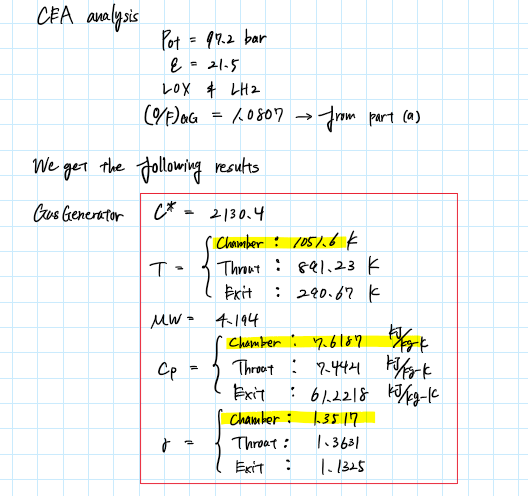 CEA analysis
Pot = 97.2 bar
ε = 21.5
LOX & LH2
(O/F)GG = 1.0807 → from part (a)
We get the following results
Gas Generator C* = 2130.4
T = { Chamber : 1051.6 K
Throat : 891.23 K
Exit : 290.67 K
MW = 4.194
Cp = { Chamber : 7.6187 kJ/kg-K
Throat : 7.4421 kJ/kg-K
Exit : 61.2218 kJ/kg-K
γ = { Chamber : 1.3517
Throat : 1.3631
Exit : 1.1325